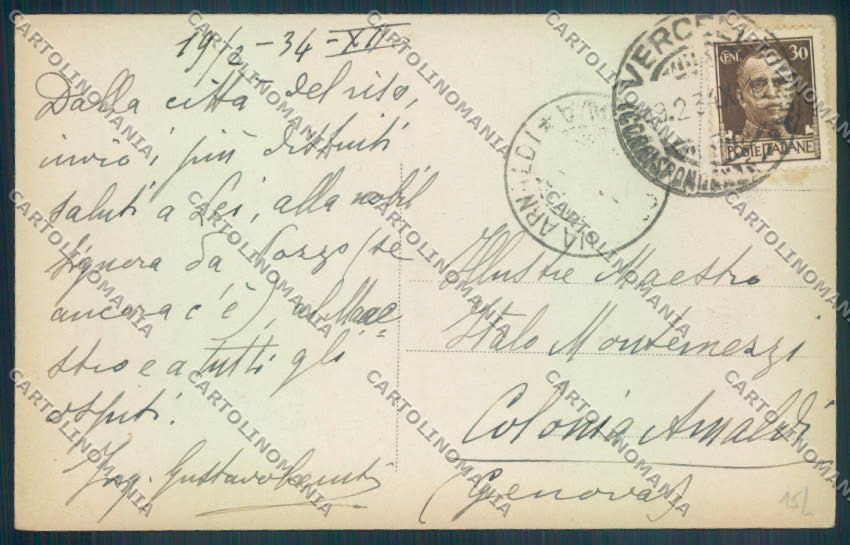 19/2-34-XII
Dalla città del riso,
invio i più distinti
saluti a Lei, alla nobil
Signora da Pozzo (se
ancora c'è), al Mae=
stro e a tutti gli
ospiti.
Ing. Gustavo
Illustre Maestro
Italo Montemezzi
Colonia Arnaldi
(Genova)
VERCELLI
CORRISPONDENZE
POSTE ITALIANE
30
COLONIA ARNALDI
15/
CARTOLINOMANIA